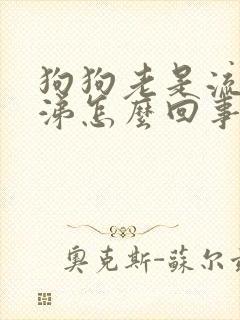 狗狗老是流
涕怎麼回事
奧克斯-蘇尔